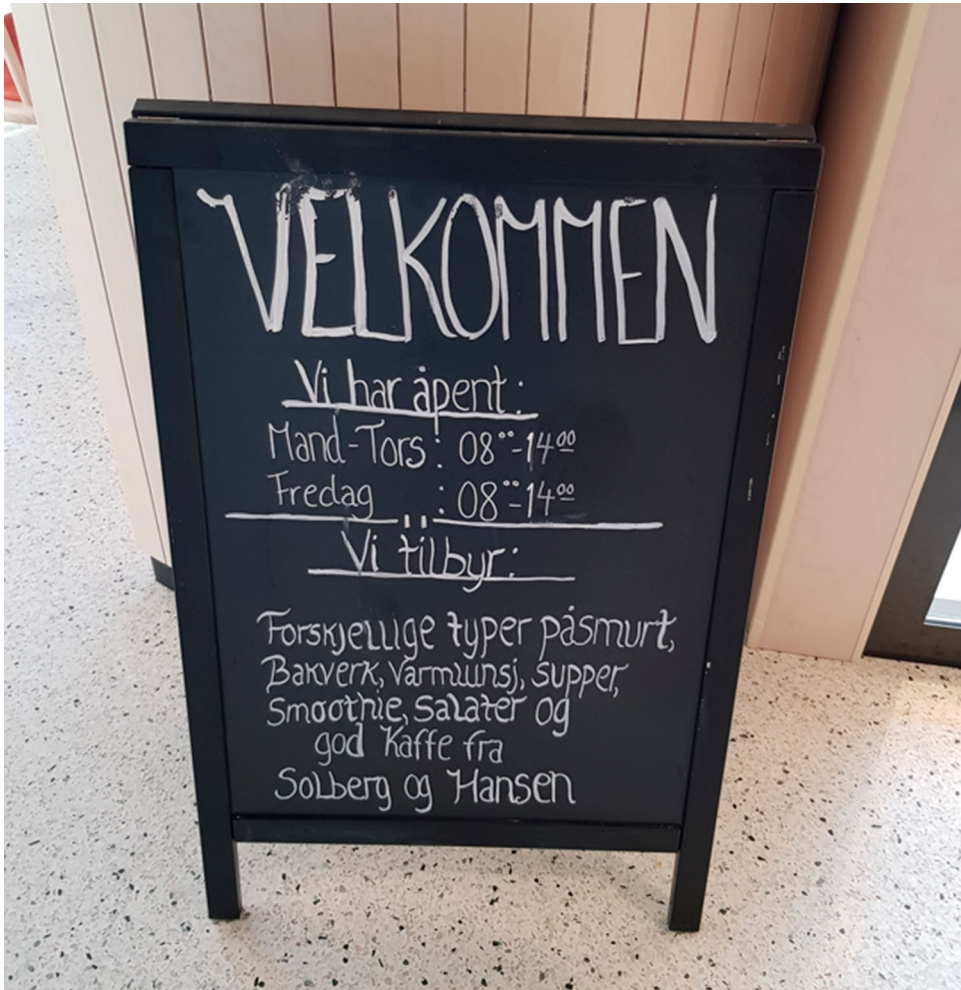 VELKOMMEN
Vi har åpent:
Mand-Tors: 08⁰⁰-14⁰⁰
Fredag : 08⁰⁰-14⁰⁰
Vi tilbyr:
Forskjellige typer påsmurt,
Bakverk, Varmlunsj, Supper,
Smoothie, Salater og
god Kaffe fra
Solberg og Hansen